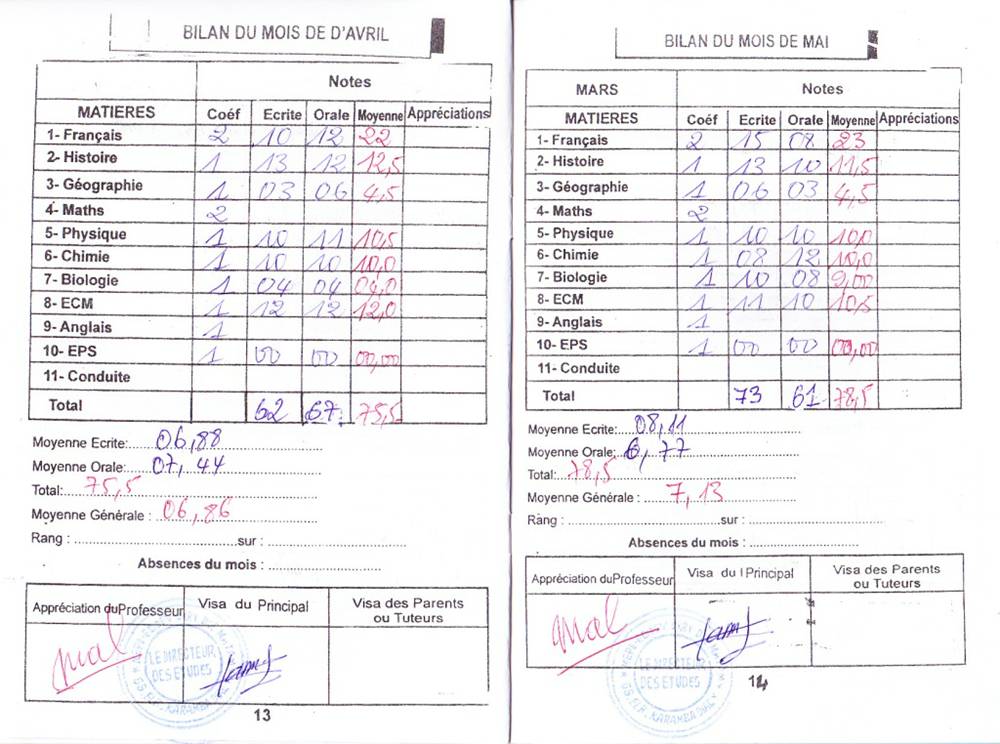 BILAN DU MOIS DE D'AVRIL
Notes
MATIERES Coéf Ecrite Orale Moyenne Appréciations
1- Français 2 10 12 22
2- Histoire 1 13 12 12,5
3- Géographie 1 03 06 4,5
4- Maths 2
5- Physique 1 10 11 10,5
6- Chimie 1 10 10 10,0
7- Biologie 1 04 04 04,0
8- ECM 1 12 12 12,0
9- Anglais 1
10- EPS 1 00 00 00,00
11- Conduite
Total 62 67 75,5
Moyenne Ecrite: 06,88
Moyenne Orale: 07,44
Total: 75,5
Moyenne Générale : 06,86
Rang : sur :
Absences du mois :
Appréciation du Professeur Visa du Principal Visa des Parents ou Tuteurs
Mal
LE DIRECTEUR DES ETUDES
13
BILAN DU MOIS DE MAI
MARS Notes
MATIERES Coéf Ecrite Orale Moyenne Appréciations
1- Français 2 15 08 23
2- Histoire 1 13 10 11,5
3- Géographie 1 06 03 4,5
4- Maths 2
5- Physique 1 10 10 10,0
6- Chimie 1 08 12 10,0
7- Biologie 1 10 08 9,00
8- ECM 1 11 10 10,5
9- Anglais 1
10- EPS 1 00 00 00,00
11- Conduite
Total 73 61 78,5
Moyenne Ecrite: 08,11
Moyenne Orale: 6,77
Total: 78,5
Moyenne Générale : 7,13
Rang : sur :
Absences du mois :
Appréciation du Professeur Visa du Principal Visa des Parents ou Tuteurs
Mal
LE DIRECTEUR DES ETUDES
14